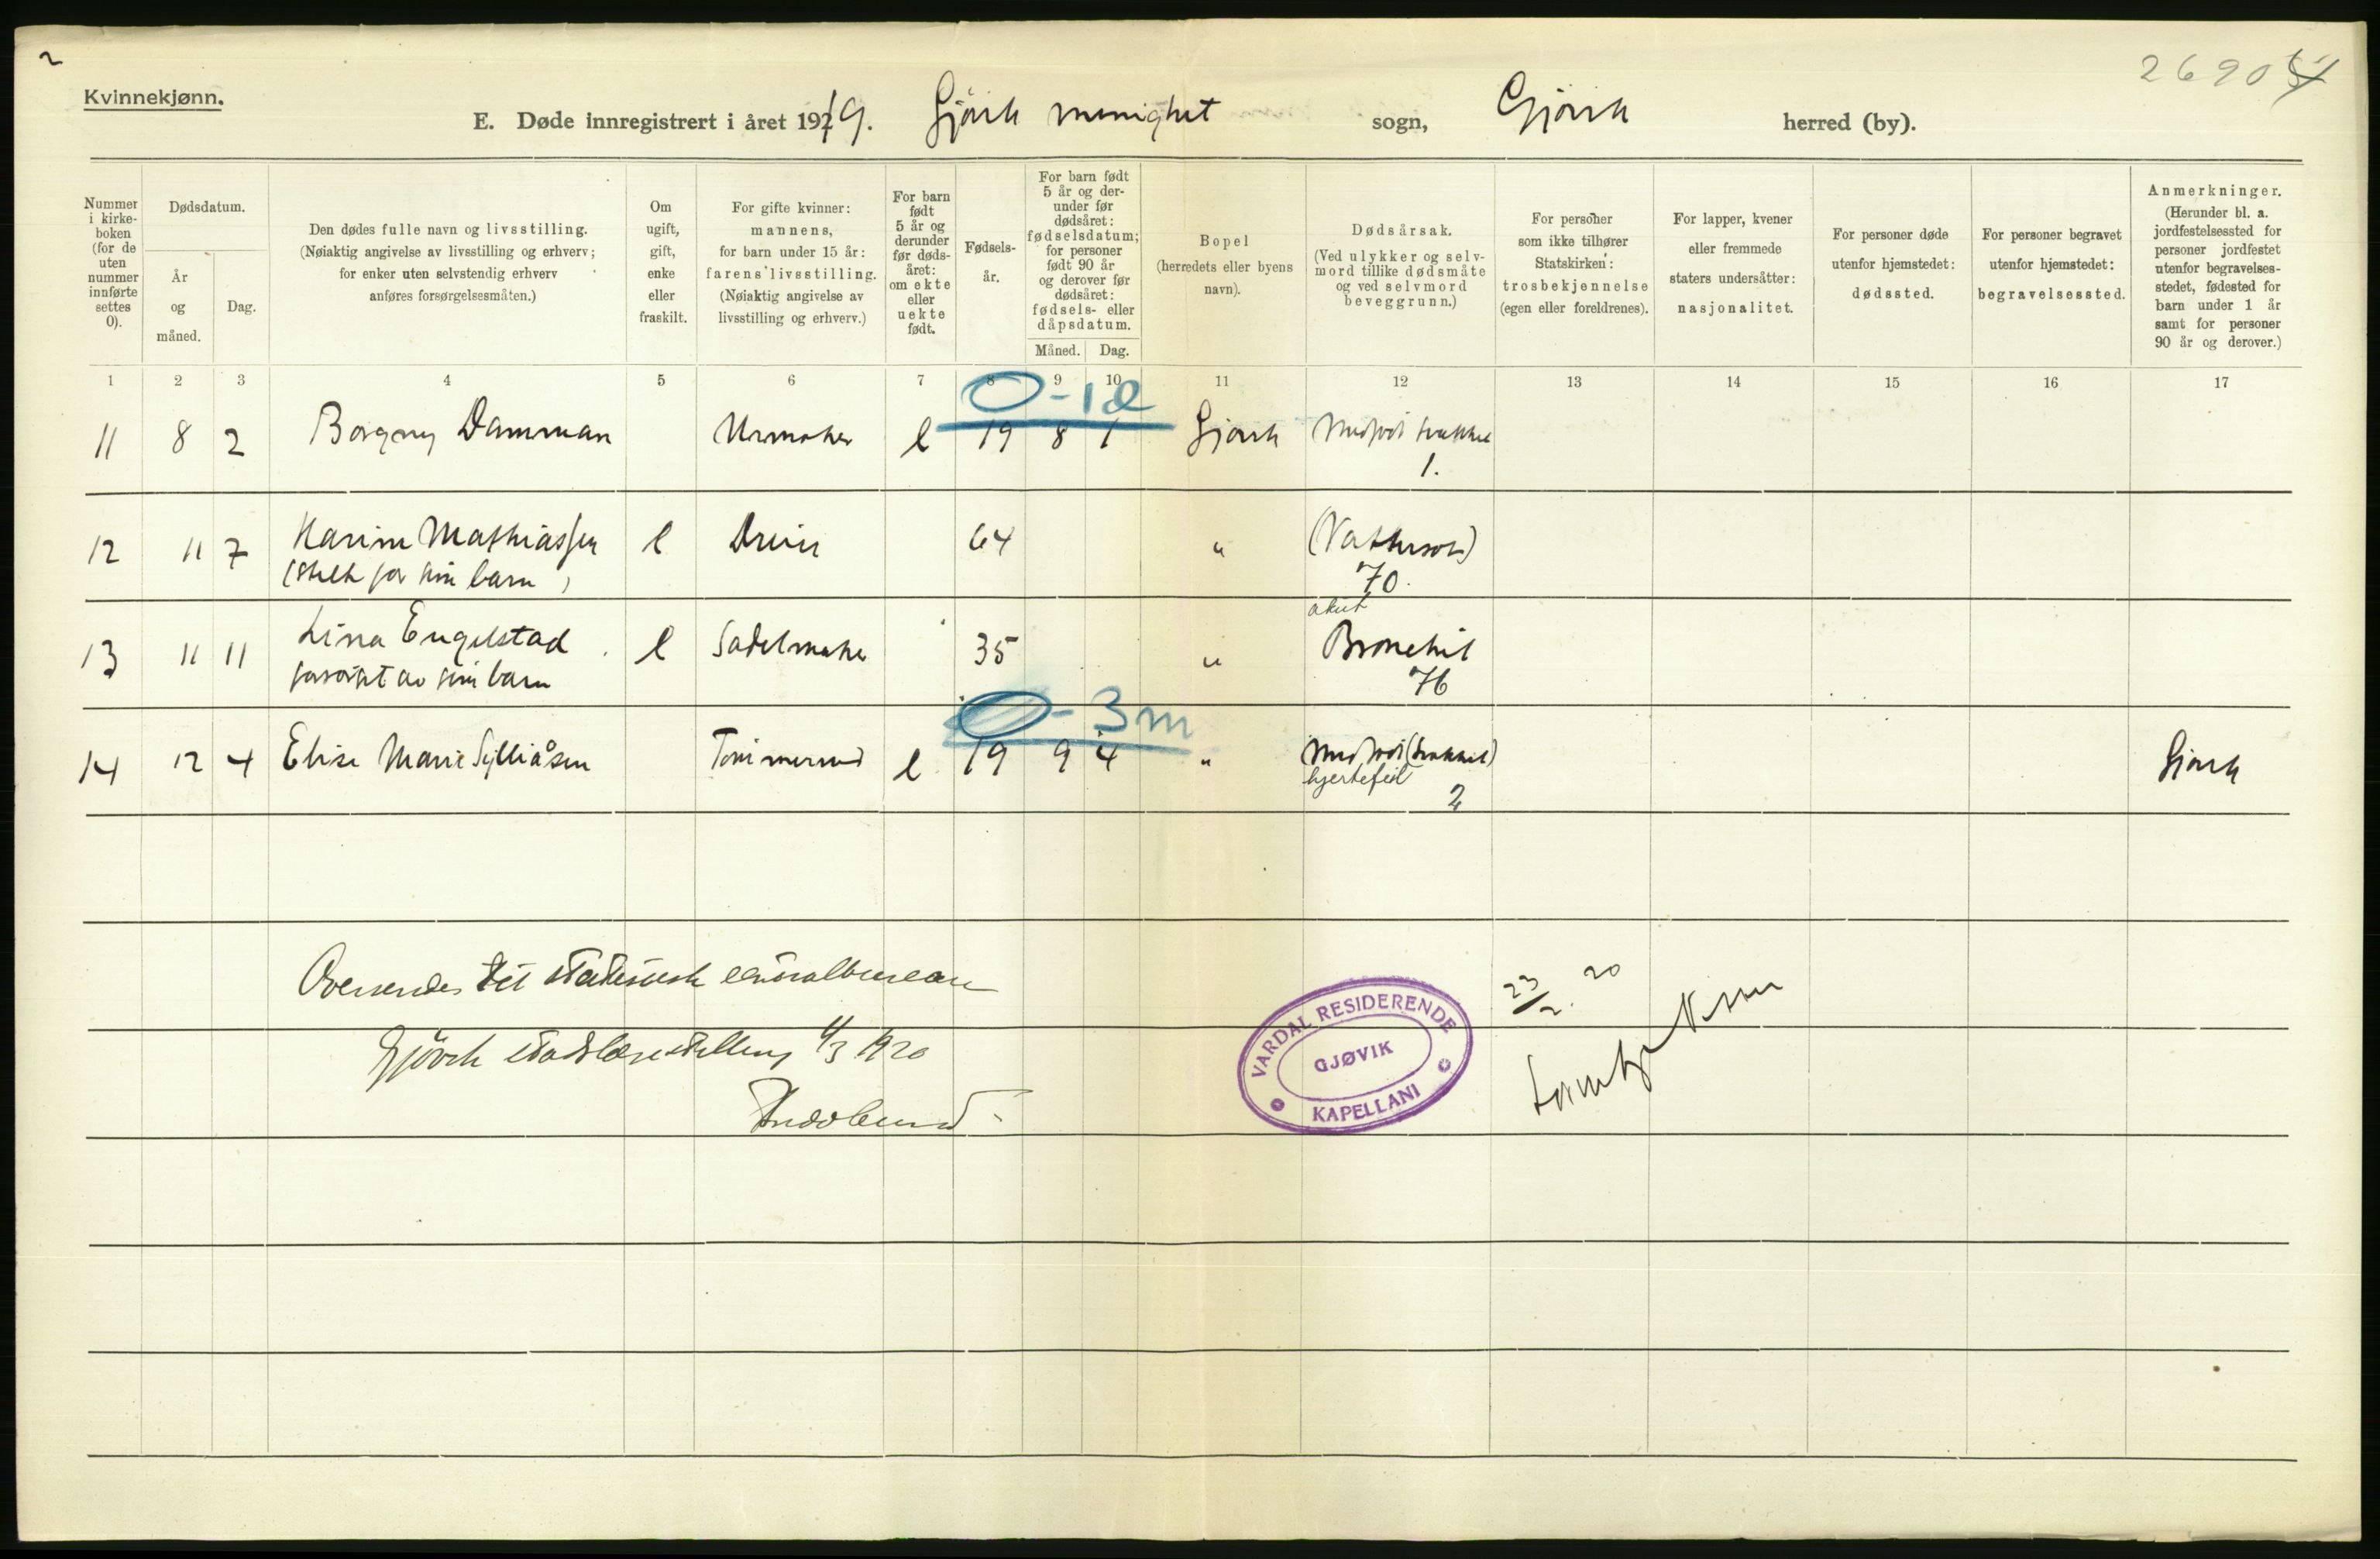 2
26905
Kvinnekjønn.
E. Døde innregistrert i året 1919. Gjøvik menighet sogn, Gjøvik herred (by).
Nummer i kirke- boken (for de uten nummer innførte settes 0).
Dødsdatum.
År og måned.
Dag.
Den dødes fulle navn og livsstilling.
(Nøiaktig angivelse av livsstilling og erhverv;
for enker uten selvstendig erhverv
anføres forsørgelsesmåten.)
Om ugift, gift, enke eller fraskilt.
For gifte kvinner:
mannens,
for barn under 15 år:
farens livsstilling.
(Nøiaktig angivelse av
livsstilling og erhverv.)
For barn født 5 år og derunder før døds- året: om ekte eller uekte født.
Fødsels- år.
For barn født 5 år og der- under før dødsåret: fødselsdatum; for personer født 90 år og derover før dødsåret: fødsels- eller dåpsdatum.
Måned. Dag.
Bopel
(herredets eller byens
navn).
Dødsårsak.
(Ved ulykker og selv-
mord tillike dødsmåte
og ved selvmord
beveggrunn.)
For personer
som ikke tilhører
Statskirken:
trosbekjennelse
(egen eller foreldrenes).
For lapper, kvener
eller fremmede
staters undersåtter:
nasjonalitet.
For personer døde
utenfor hjemstedet:
dødssted.
For personer begravet
utenfor hjemstedet:
begravelsessted.
Anmerkninger.
(Herunder bl. a.
jordfestelsessted for
personer jordfestet
utenfor begravelses-
stedet, fødested for
barn under 1 år
samt for personer
90 år og derover.)
1 2 3 4 5 6 7 8 9 10 11 12 13 14 15 16 17
0-1d
11 8 2 Borgny Damman Urmaker e 19 8 1 Gjøvik Medfødt svakhet
1.
12 11 7 Karine Mathiassen e 64 " (Vattersot)
for sine barn) 70.
akut
13 11 11 Lina Engelstad e Sadelmaker 35 " Bronchit
forsørget av sine barn 76
0-3m
14 12 4 Elise Marie e 19 9 4 " Medfødt (svakhet) Gjøvik
hjertefeil 2
Oversendes det statistiske centralbureau
Gjøvik stadslægestilling 4/3 1920
23/2. 20
VARDAL RESIDERENDE
GJØVIK
KAPELLANI